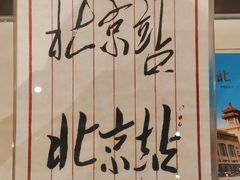 北京站
北京站
北